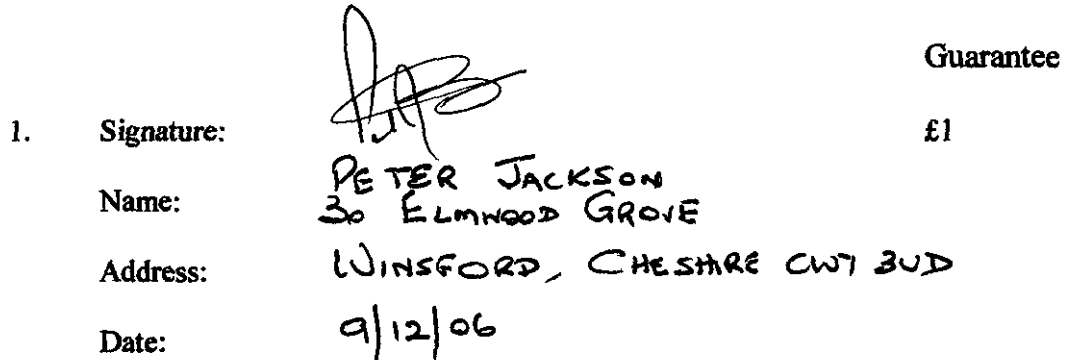 Guarantee
1. Signature: £1
Name: PETER JACKSON
30 ELMWOOD GROVE
Address: WINSFORD, CHESHIRE CW7 3UD
Date: 9/12/06